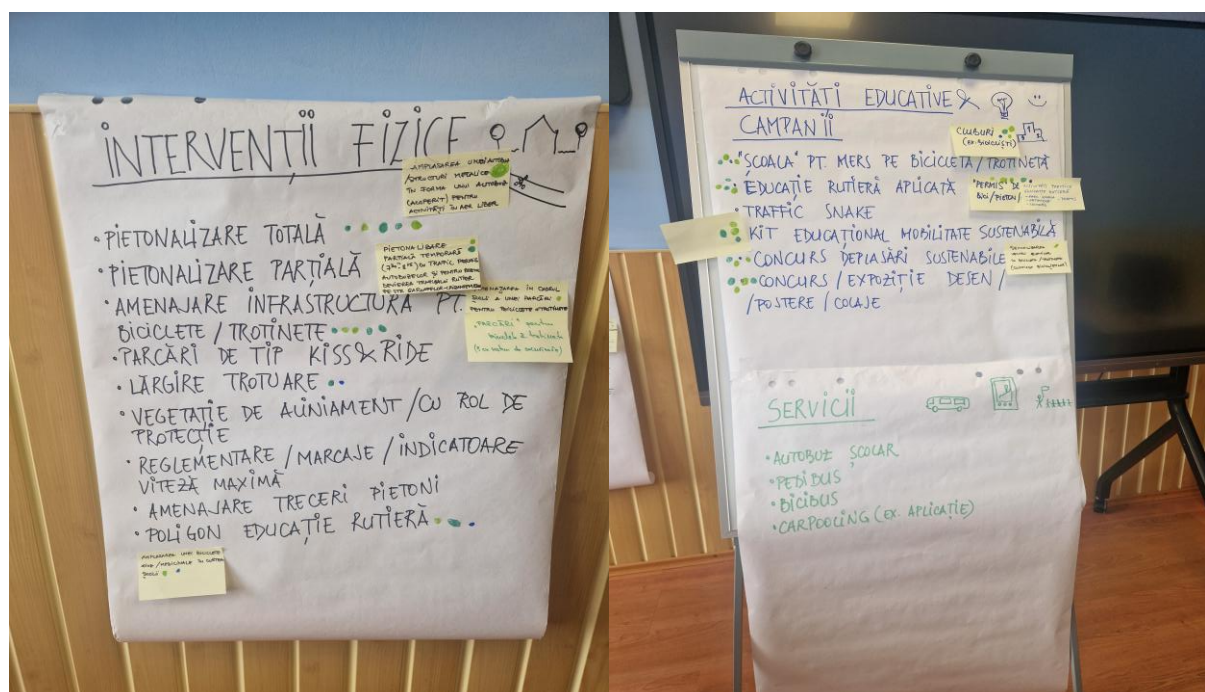 INTERVENȚII FIZICE
AMPLASAREA UNEI
STRUCTURI METALICE
ÎN FORMA UNUI AUTOBUZ
(ACOPERIT) PENTRU
ACTIVITĂȚI ÎN AER LIBER
• PIETONALIZARE TOTALĂ
• PIETONALIZARE PARȚIALĂ
PIETONALIZARE
PARȚIALĂ TEMPORARĂ
CU TRAFIC PERMIS
AUTOBUZELOR ȘI PENTRU
DEVIEREA TRAFICULUI RUTIER
• AMENAJARE INFRASTRUCTURĂ PT.
BICICLETE / TROTINETE
ÎN CADRUL
ȘCOLII A UNEI PARCĂRI
PENTRU BICICLETE + TROTINETE
"PARCĂRI" pentru
biciclete & trotinete
• PARCĂRI DE TIP KISS & RIDE
• LĂRGIRE TROTUARE
• VEGETAȚIE DE ALINIAMENT / CU ROL DE
PROTECȚIE
• REGLEMENTARE / MARCAJE / INDICATOARE
VITEZĂ MAXIMĂ
• AMENAJARE TRECERI PIETONI
• POLIGON EDUCAȚIE RUTIERĂ
AMPLASAREA UNEI BICICLETE
ÎN CURTEA
ȘCOLII
ACTIVITĂȚI EDUCATIVE &
CAMPANII
CLUBURI
(EX. BICICLIȘTI)
• "ȘCOALA" PT. MERS PE BICICLETĂ / TROTINETĂ
• EDUCAȚIE RUTIERĂ APLICATĂ
"PERMIS DE
BICI/PIETON/
• TRAFFIC SNAKE
• KIT EDUCAȚIONAL MOBILITATE SUSTENABILĂ
• CONCURS DEPLASĂRI SUSTENABILE
• CONCURS / EXPOZIȚIE DESEN /
/ POSTERE / COLAJE
SERVICII
• AUTOBUZ ȘCOLAR
• PEDIBUS
• BICIBUS
• CARPOOLING (EX. APLICAȚIE)